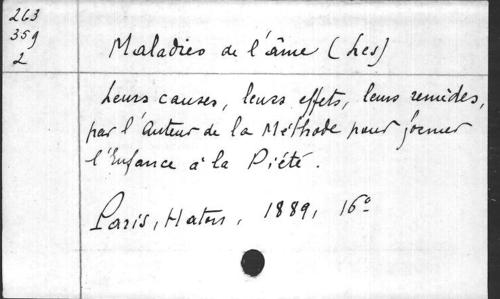 263
359
2
Maladies de l'âme (Les)
Leurs causes, leurs effets, leurs remèdes,
par l'Auteur de la Méthode pour former
l'Enfance à la Piété.
Paris, Haton, 1889, 16º